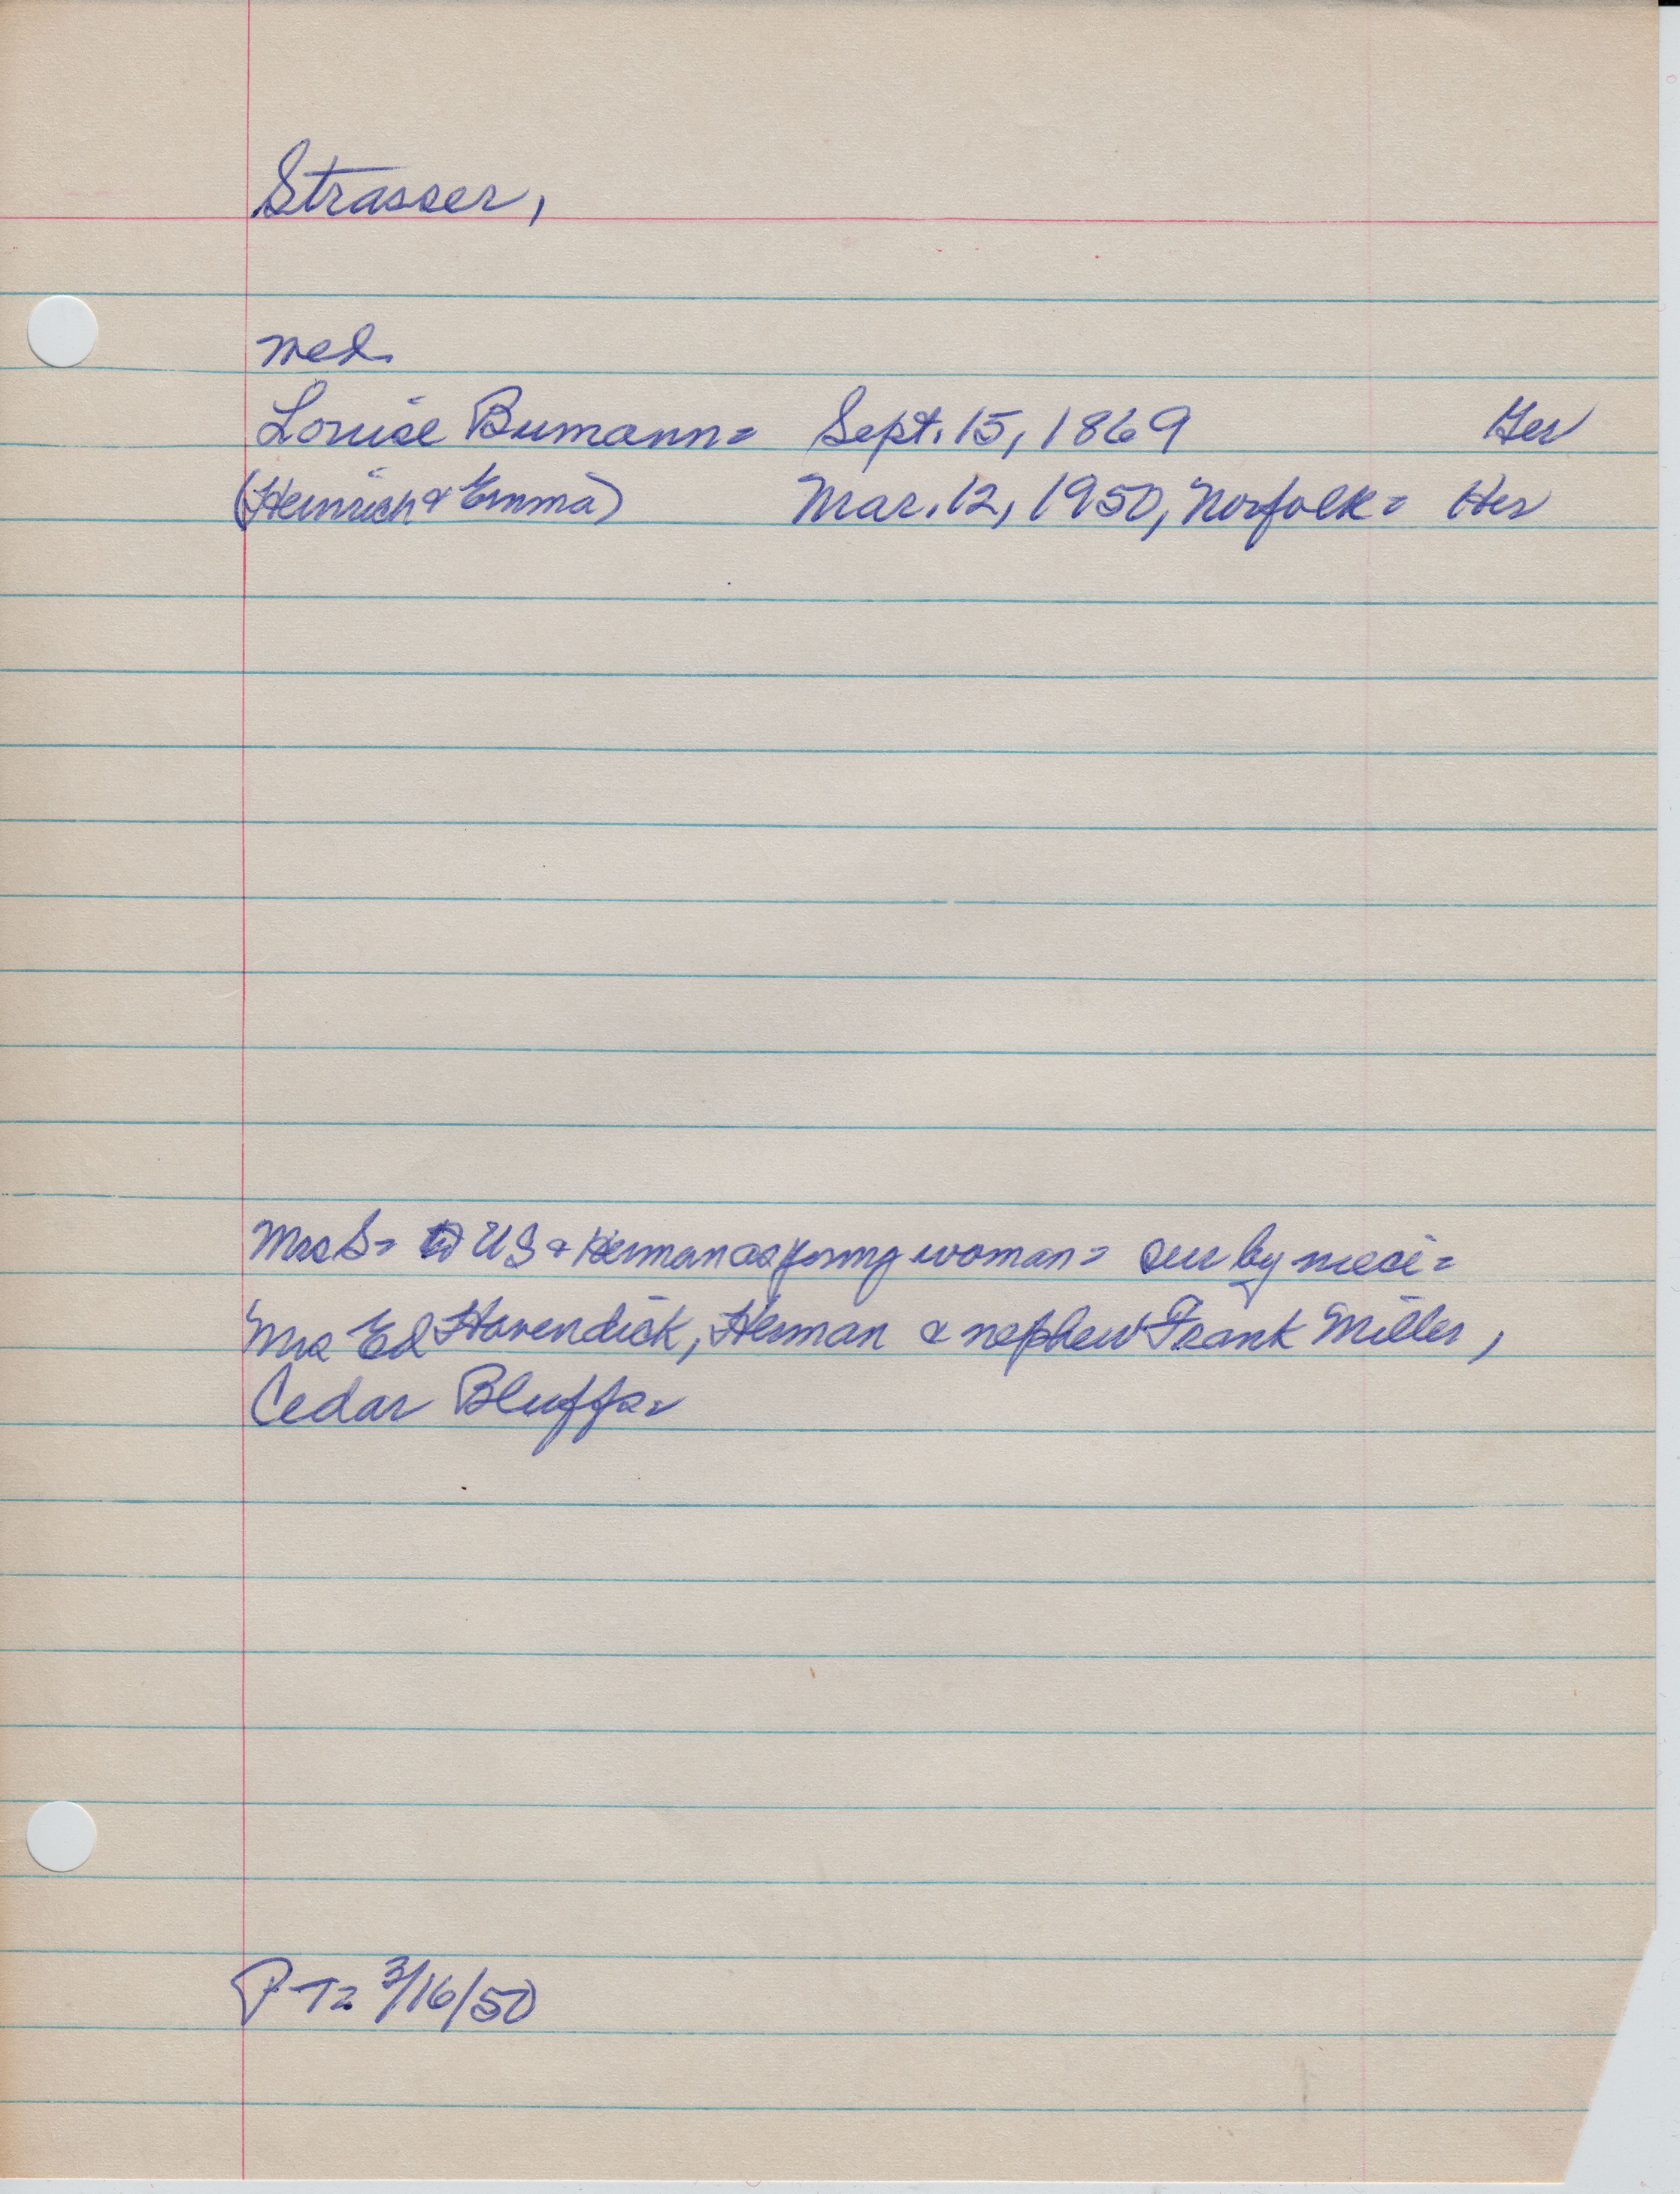 Strasser,
med.
Louise Bumann= Sept. 15, 1869 Ger
(Heinrich & Emma) Mar. 12, 1950, Norfolk= Her
Mrs S= to US & Herman as young woman= sur by niece=
Mrs Ed Havendick, Herman & nephew Frank Miller,
Cedar Bluffs=
P-T= 3/16/50